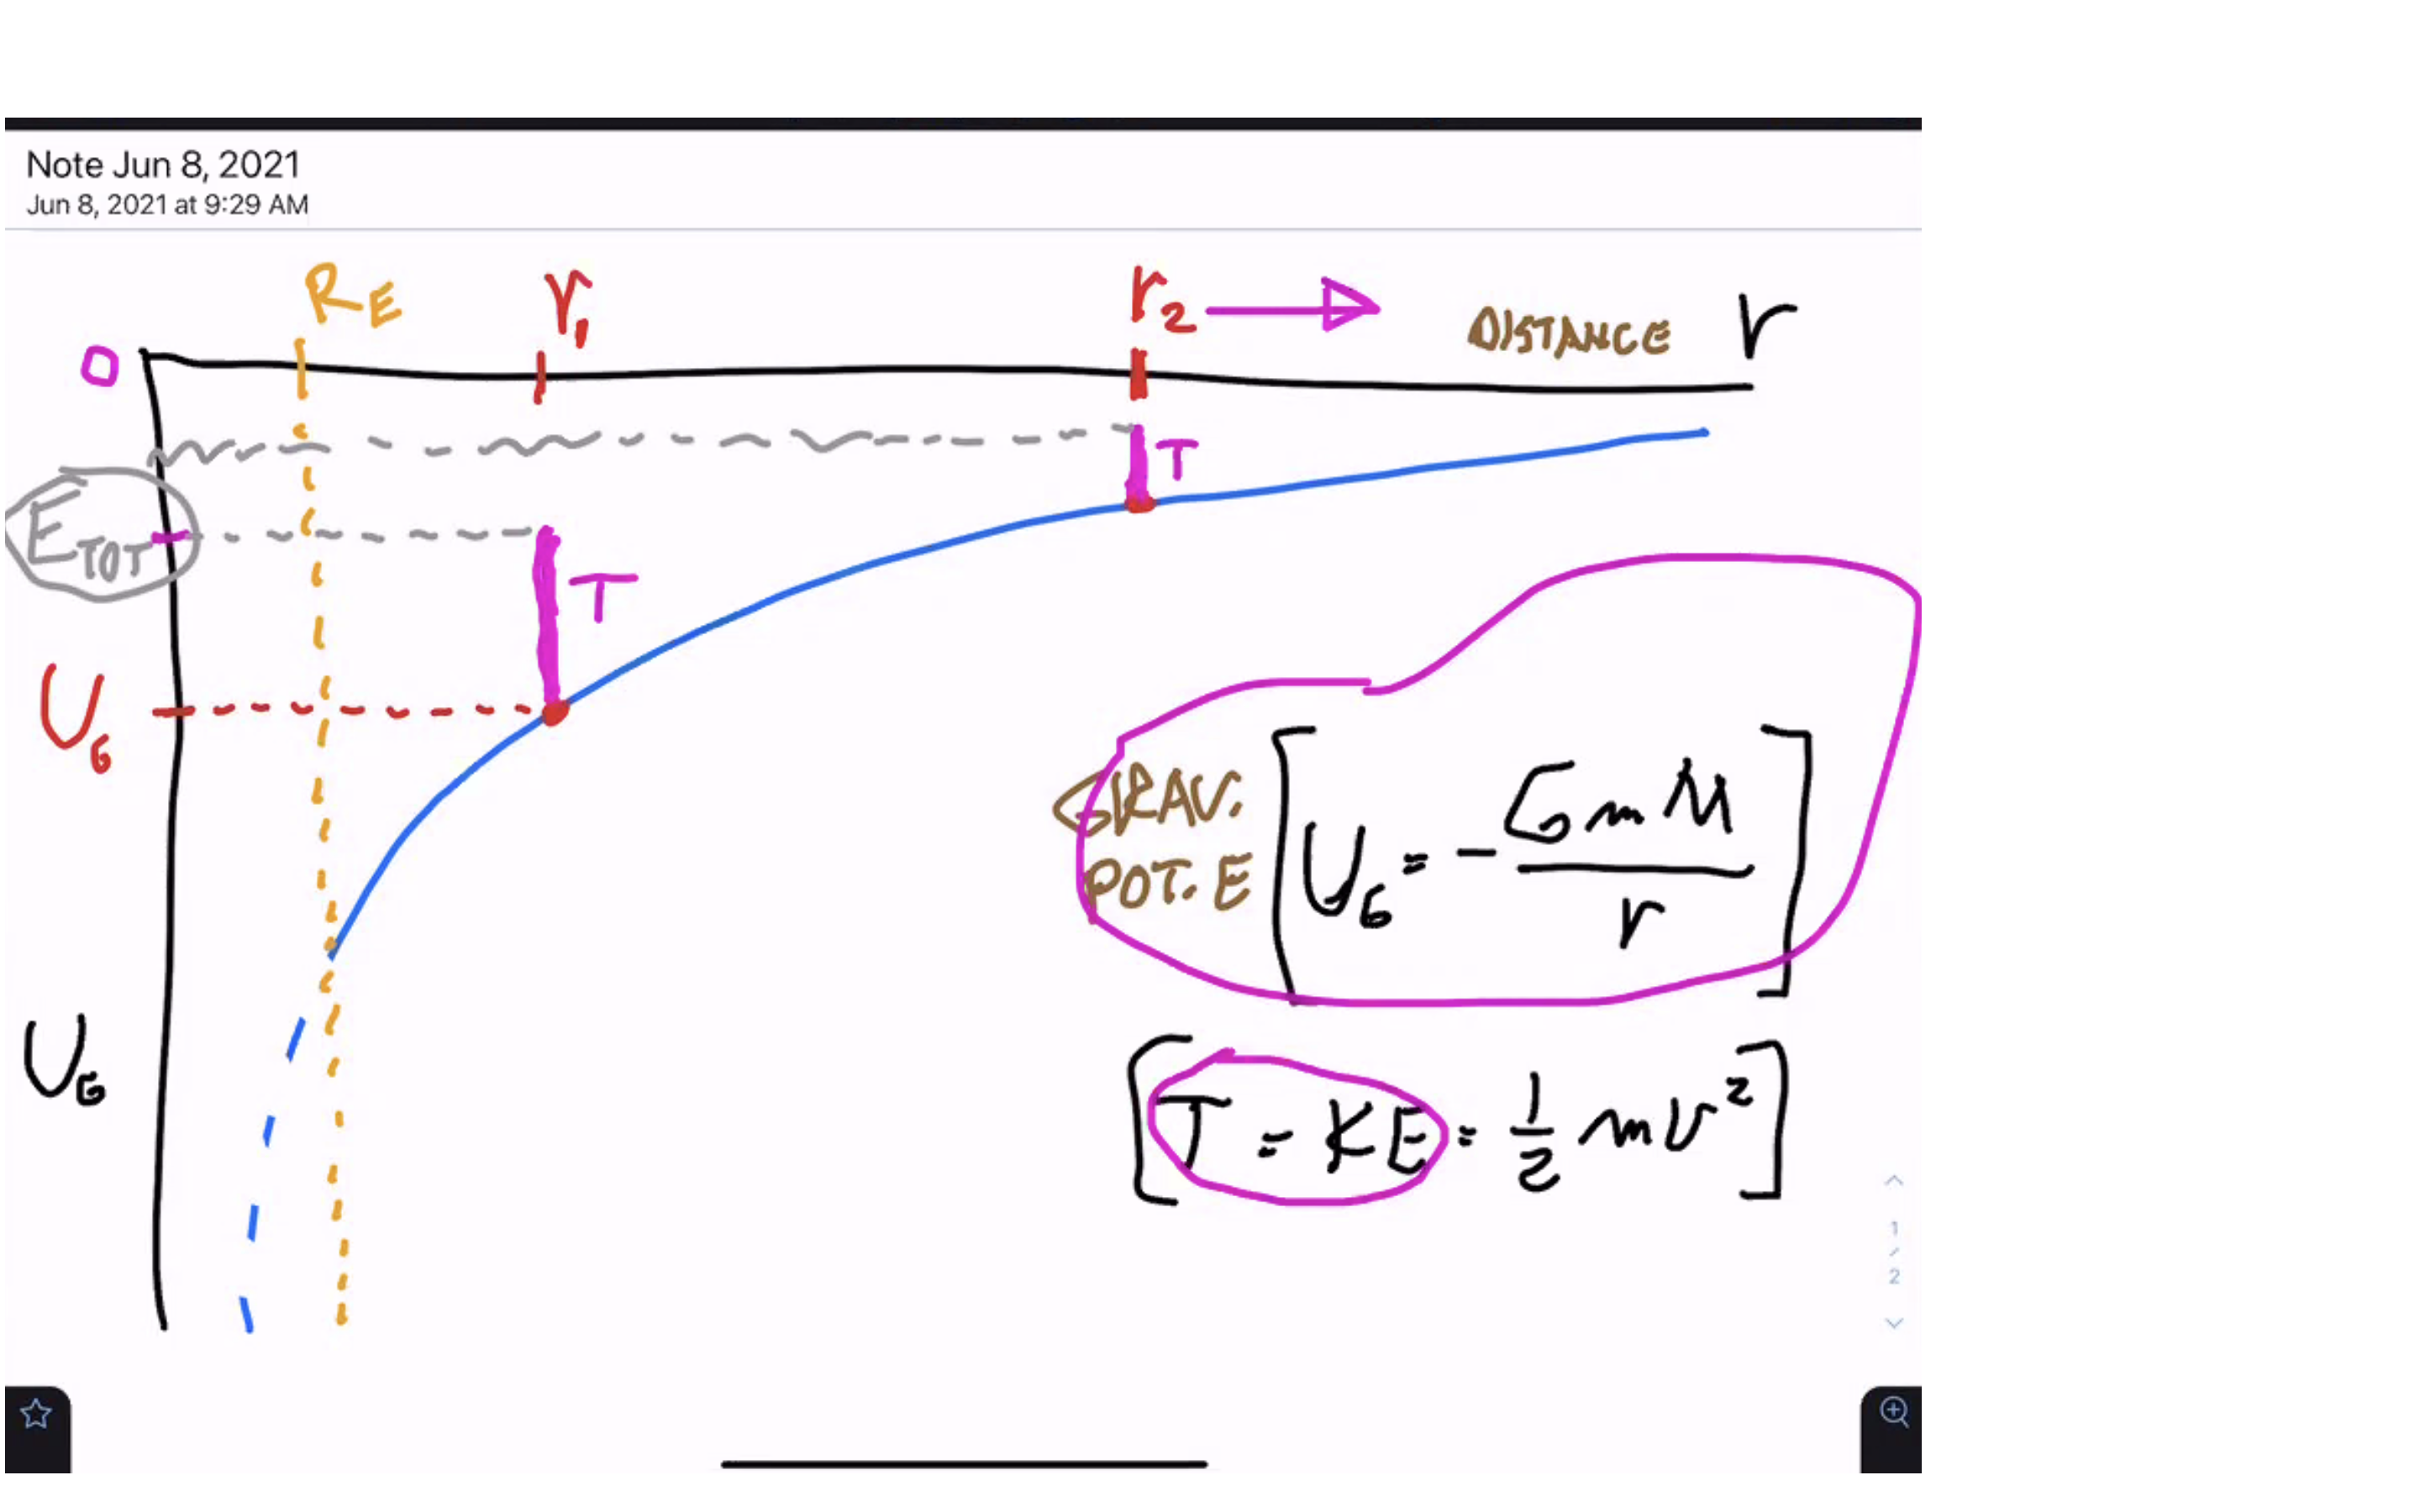 Note Jun 8, 2021
Jun 8, 2021 at 9:29 AM
R_E r_1 r_2 DISTANCE r
0
T
E_TOT
T
U_G
GRAV. POT. E [U_G = - GmM / r]
U_G
[T = KE = 1/2 mv^2]
1
/
2